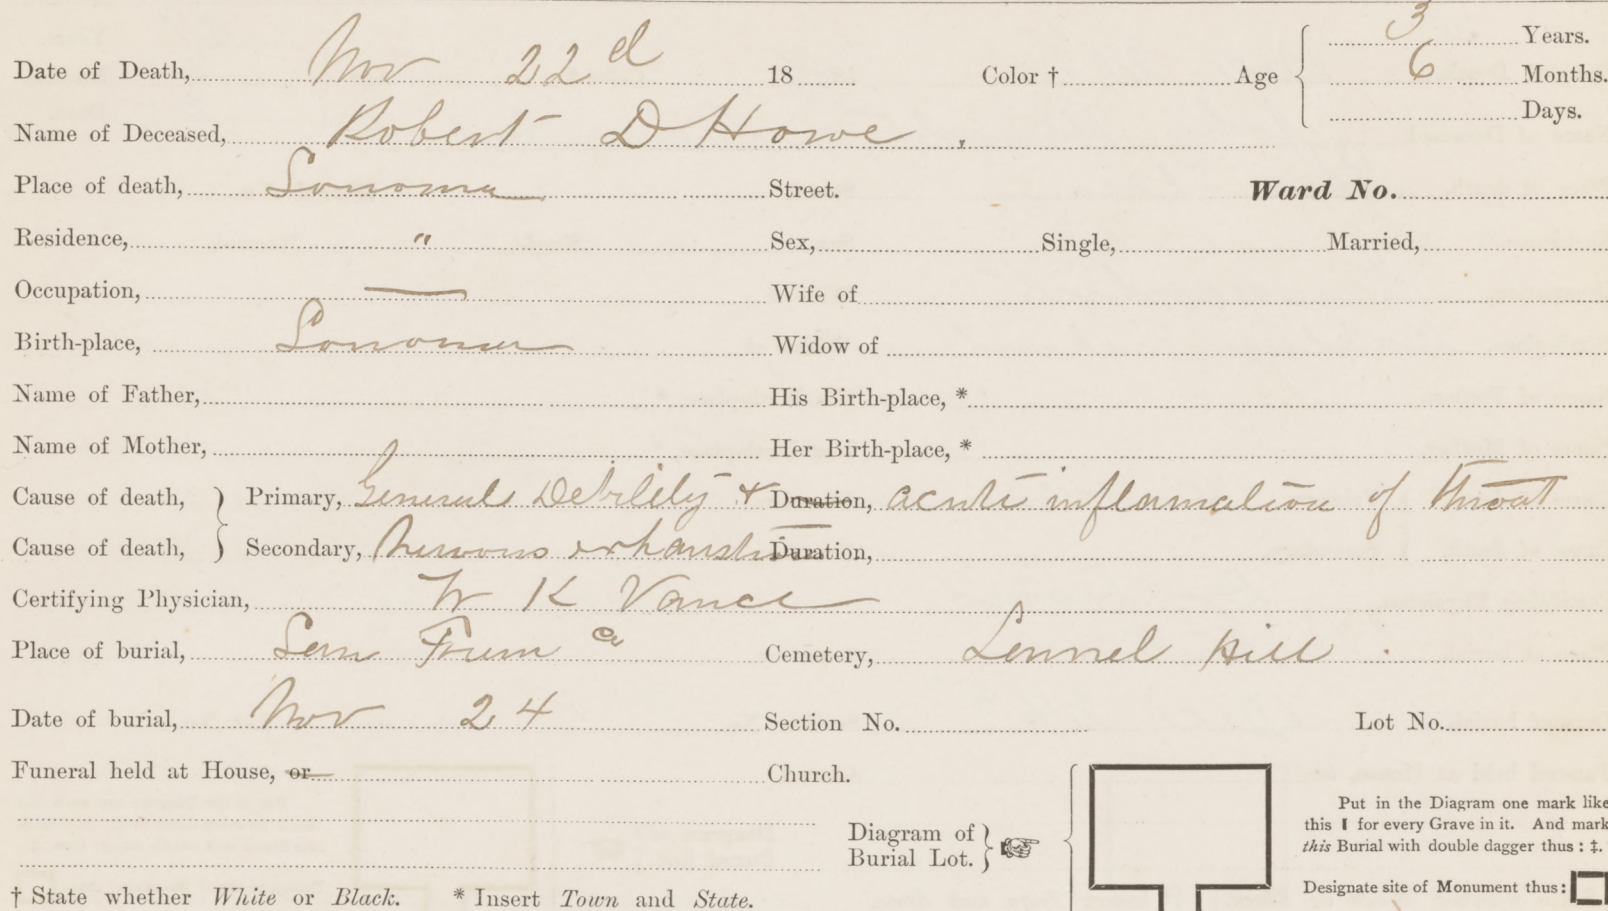 3 Years.
Date of Death, Nov 22d 18 Color † Age 6 Months.
Days.
Name of Deceased, Robert D Howe,
Place of death, Sonoma Street. Ward No.
Residence, " Sex, Single, Married,
Occupation, — Wife of
Birth-place, Sonoma Widow of
Name of Father, His Birth-place, *
Name of Mother, Her Birth-place, *
Cause of death, } Primary, General Debility & Duration, acute inflamation of throat
Cause of death, } Secondary, Nervous exhaustion Duration,
Certifying Physician, W K Vance
Place of burial, San Fran Co Cemetery, Laurel Hill.
Date of burial, Nov 24 Section No. Lot No.
Funeral held at House, or Church.
Put in the Diagram one mark like
Diagram of this I for every Grave in it. And mark
Burial Lot. } this Burial with double dagger thus: ‡.
Designate site of Monument thus:
† State whether White or Black. * Insert Town and State.